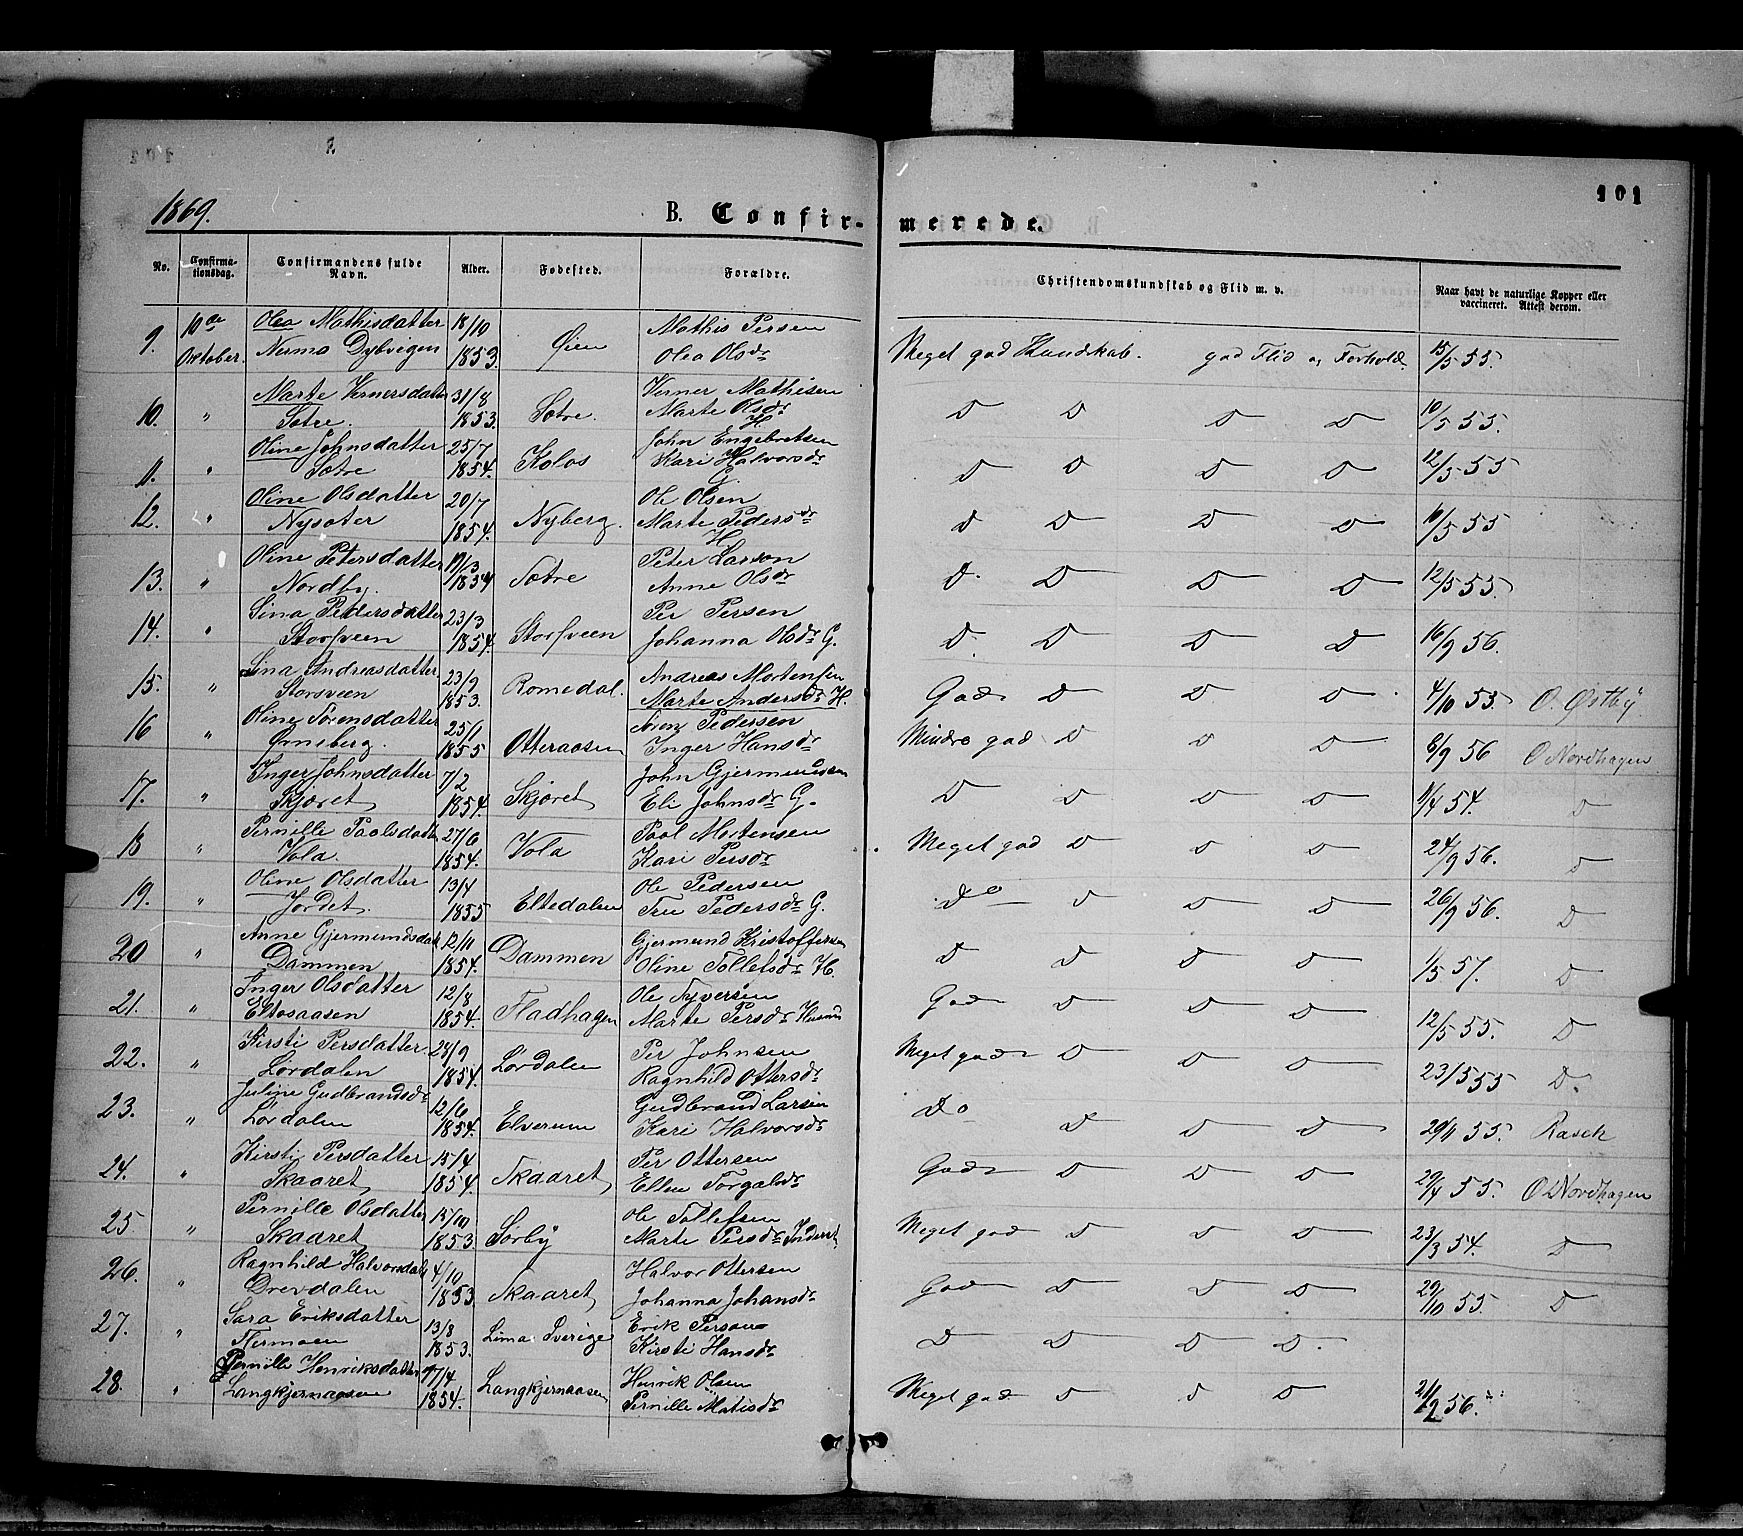 101
1869.
B. Confirmerede.
No. Confirmationsdag. Confirmandens fulde Navn. Alder. Fødested. Forældre. Christendomskundskab og Flid m. v. Naar havt de naturlige Kopper eller vaccineret. Attest derom.
9. 10de Olea Mathisdatter 18/10 Mathis Persen
Oktober. Dybvigen 1853. Øien Olea Olsdr Meget god Kundskab. god Flid og Forhold 15/5 55.
10. " Marte Vernersdatter 31/8 Verner Mathisen
Sætre. 1853. Sætre. Marte Olsdr H. D D D D 10/5 55.
11. " Oline Johnsdatter 25/7 John Engebretsen
Sætre 1854. Kolos Kari Halvorsdr G. D D D D 12/5 55
12. " Oline Olsdatter 20/7 Ole Olsen
Nysæter 1854. Nyberg. Marte Pedersdr H D D D D 10/5 55
13. " Oline Petersdatter 19/3 Peter Larson
Nordby. 1854 Sætre Anne Olsdr D. D D D 12/5 55.
14. " Sina Pedersdatter 23/3 Per Persen
Storsveen 1854. Storsveen Johanna Olsdr G. D. D D D 16/9 56.
15. " Sina Andreasdatter 23/9 Andreas Mortensen
Storsveen 1853. Romedal. Marte Andersdr H. God D D D 4/10 53. O. Østby
16 " Oline Sørensdatter 25/1 Sørenz Pedersen
Ørneberg. 1855 Otteraasen Inger Hansdr Mindre god D D D 6/9 56 O Nordhagen
17. " Inger Johnsdatter 7/2 John Gjermundsen
Skjæret 1854. Skjæret Eli Johnsdr G. D D D D 1/4 54. D
18 " Pernille Paalsdatter 27/6 Paal Mortensen
Vola. 1854. Vola Kari Persdr Meget god D D D 24/9 56. D
19. " Oline Olsdatter 13/4 Ole Pedersen
Jordet. 1855 Eltedalen Tru Pedersdr G. Do D D D 26/9 56. D
20 " Anne Gjermundsdatt 12/11 Gjermund Kristoffersen
Dammen 1854. Dammen Oline Tollefsdr H. D D D D 1/5 57. D
21. " Inger Olsdatter 12/8 Ole Syversen
Eltosaasen 1854. Fladhagen Marte Persdr God D D D 12/5 55. D
22. " Kirsti Persdatter 28/9 Per Johnsen
Lørdalen 1854. Lørdalen Ragnhild Ottersdr Meget god D D D 23/5 55 D.
23. " Juline Gudbrandsdr 12/6 Gudbrand Larsen
Lørdalen 1854. Elverum Kari Halvorsdr Do D D D 29/1 55. Rasch
24. " Kirsti Persdatter 15/4 Per Ottersen
Skaaret 1854. Skaaret Ellen Torgalsdr God D D D 29/4 55. O Nordhagen
25 " Pernille Olsdatter 15/10 Ole Tollefsen
Skaaret 1853. Sørby Marte Persdr Meget god D D D 23/3 54. D
26. " Ragnhild Halvorsdatt 4/10 Halvor Ottersen
Drevdalen 1853 Skaaret Johanna Johansdr God D D D 29/10 55. D
27. " Sara Eriksdatter 13/8 Erik Person
Flermoen 1853. Lima Sverige Kirsti Hansdr D D D D.
28. " Pernille Henriksdatter 17/4 Henrik Olsen
Langkjernaasen 1854. Langkjernaasen Pernille Matisdr Meget god D D D 21/2 56.